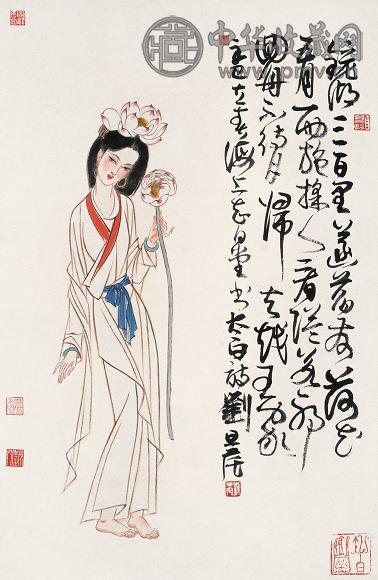 中华收藏网
鏡湖三百里菡萏發荷花
五月西施採人看隘若耶
回舟不待月歸去越王家
海上書太白詩劉旦宅